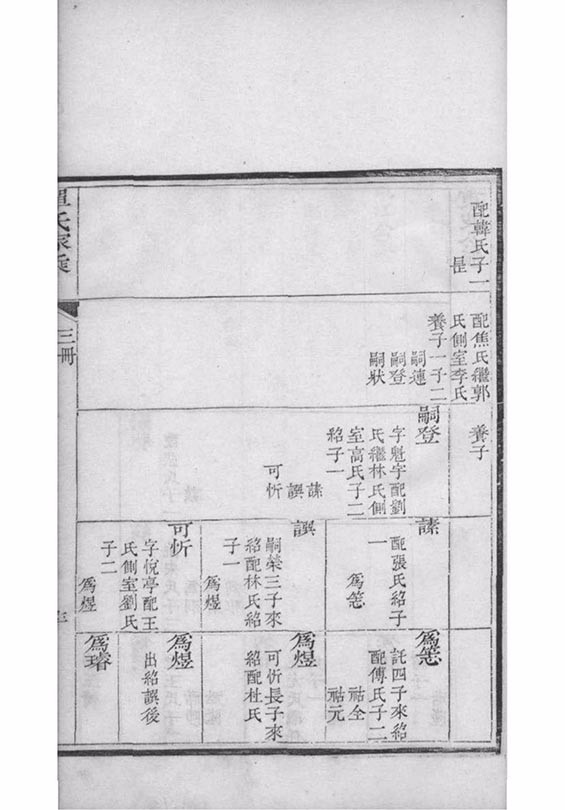 配韓氏子一
昰
配焦氏繼郭
氏側室李氏
養子一子二
嗣蓮
嗣登
嗣狀
養子
嗣登
字魁宇配劉
氏繼林氏側
室高氏子二
紹子一
諌
諰
可忻
配張氏紹子
一
為
嗣榮三子來
紹配林氏紹
子一
為煜
可忻
字悅亭配王
氏側室劉氏
子二
為煜
為
託四子來紹
配傅氏子二
祉全
祉元
為煜
可忻長子來
紹配杜氏
為煜
出紹
後
為璿
氏家乘
三冊